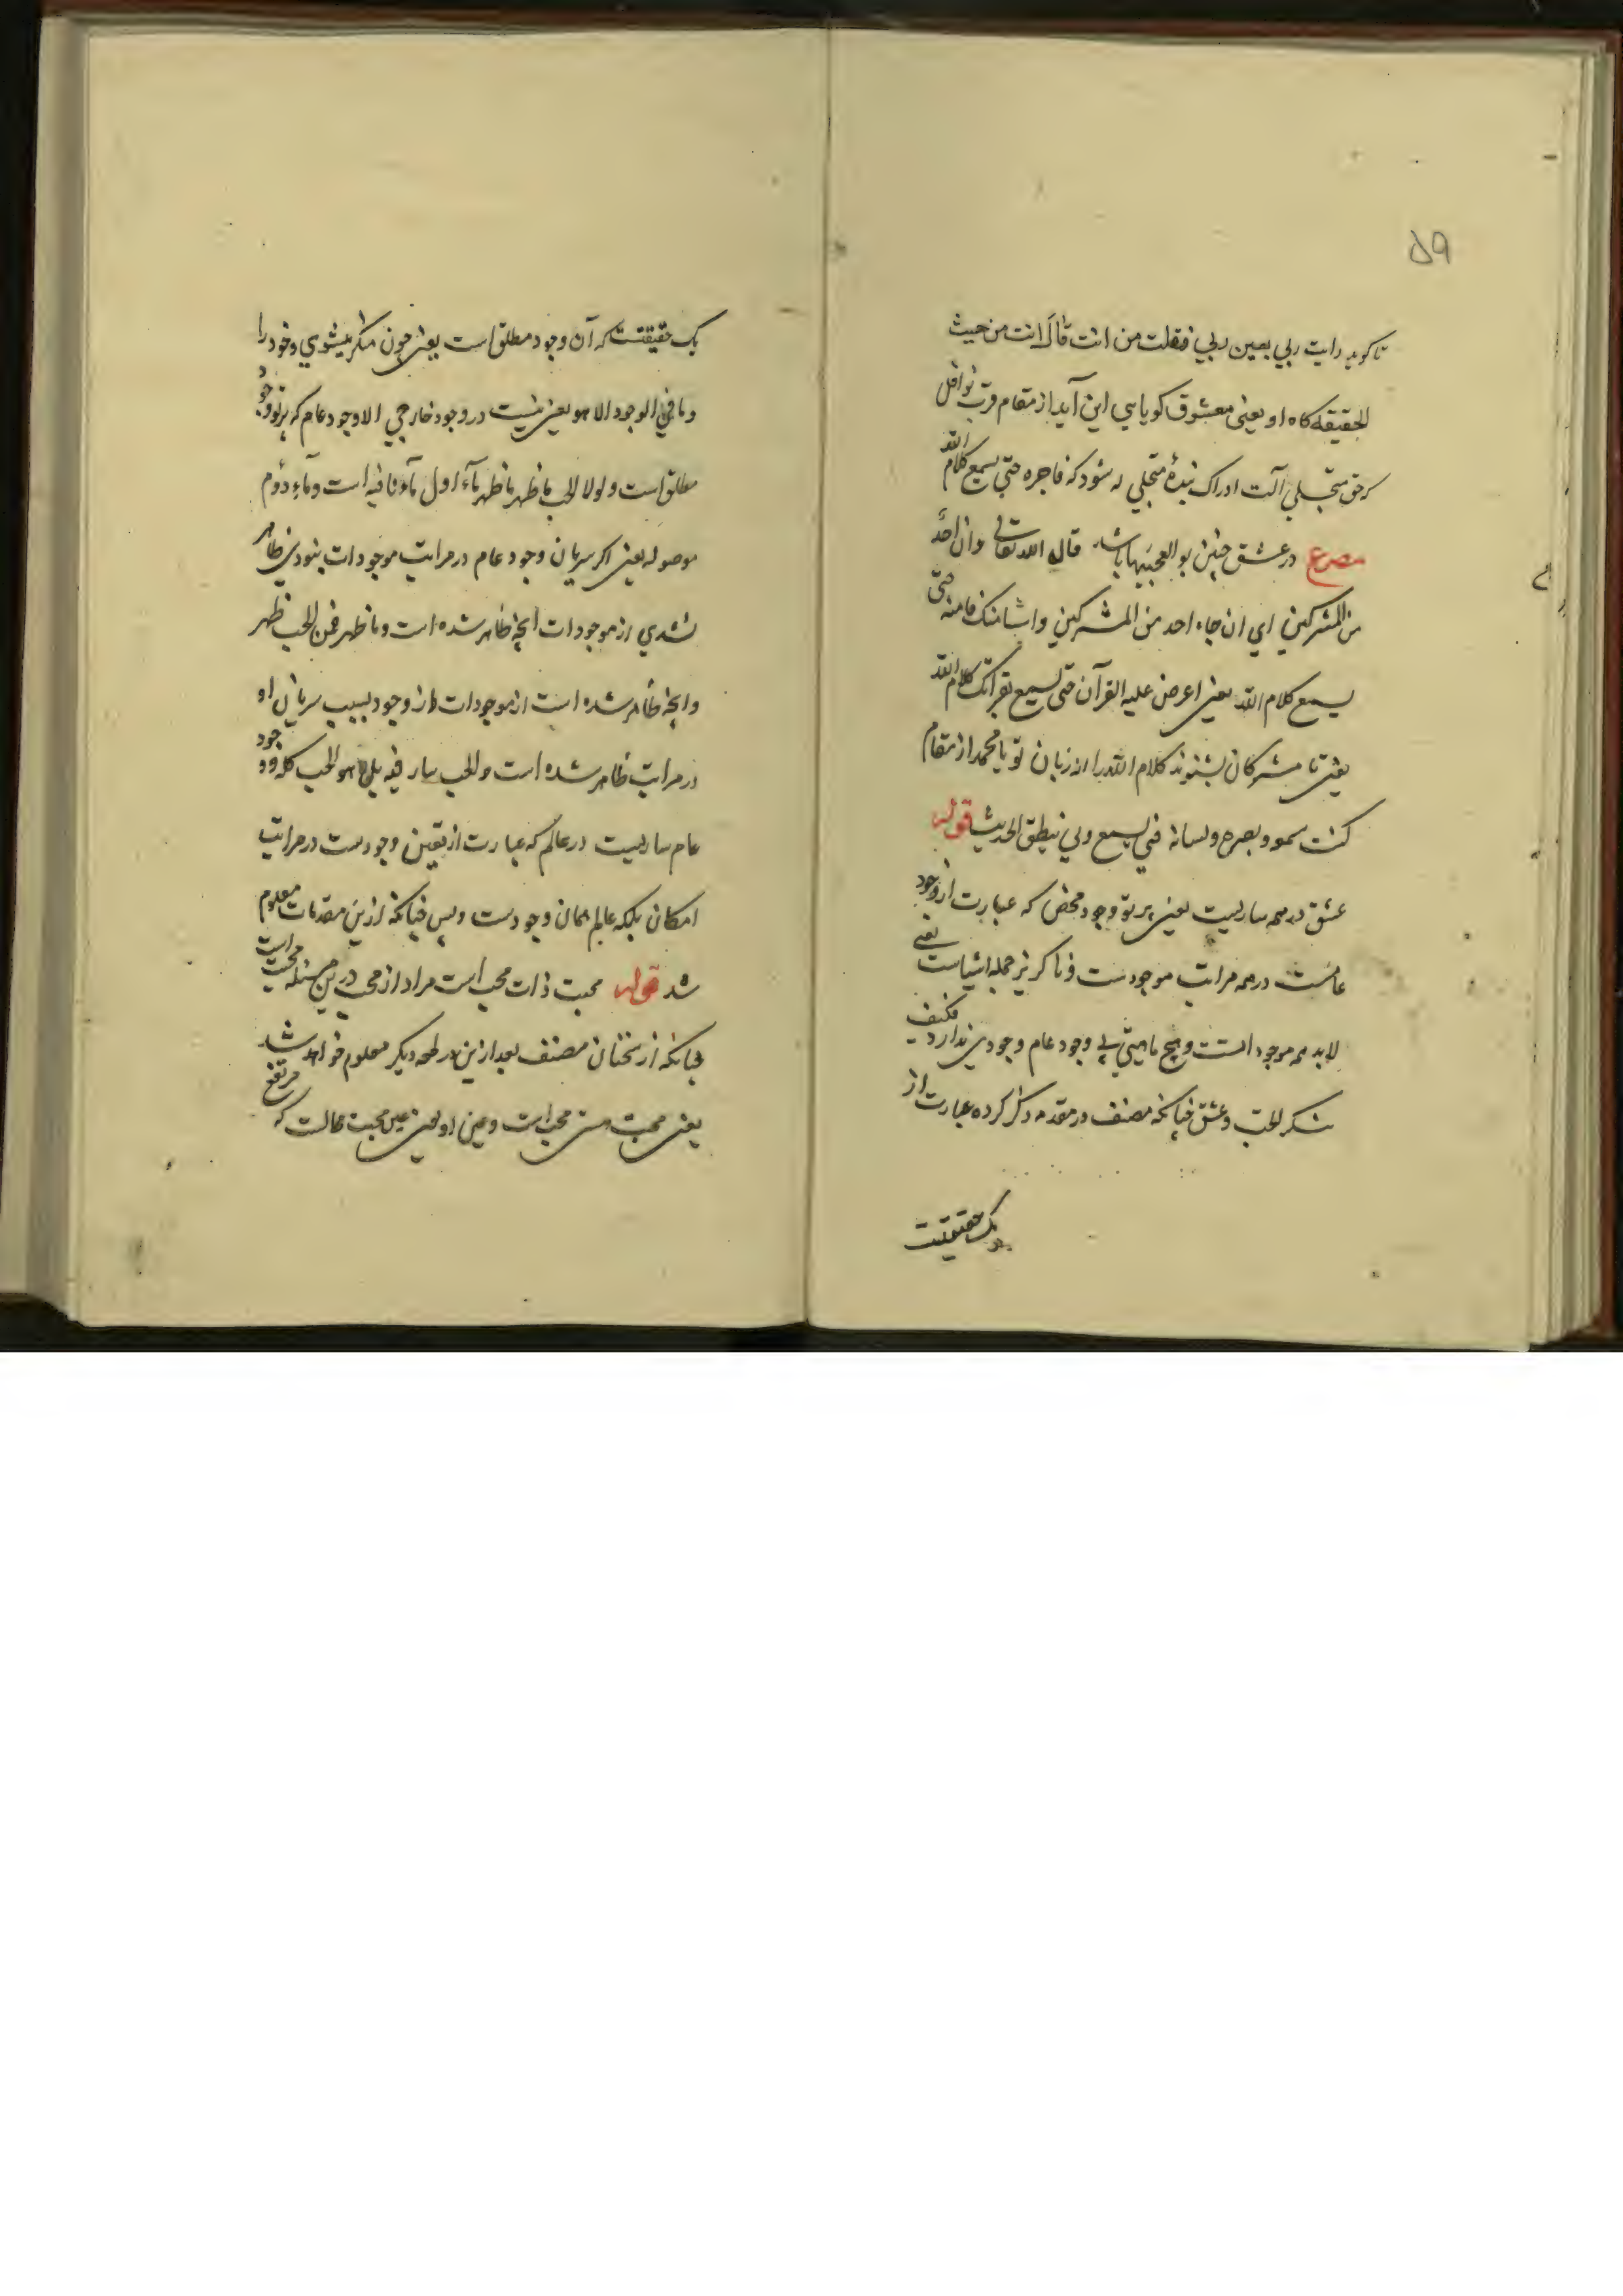 ۵۹
تا کوید رایت ربی بعین ربی فقلت من انت قال انت من حیث
الحقیقه کاه او یعنی معشوق کویا سی این آید از مقام قرب نوافل
که حق متجلی آلت ادراک بندهٔ متجلی له شود که فاجره حتی یسمع کلام الله
مصرع در عشق چنین بوالعجبیها باشد قال الله تعالی وان احد
من المشرکین ای ان جاء احد من المشرکین واستامنک فامنه حتی
یسمع کلام الله یعنی اعرض علیه القرآن حتی یسمع بقرائتک کلام الله
یعنی تا مشرکان بشنوند کلام الله را از زبان تو یا محمد از مقام
کنت سمعه وبصره ولسانه فبی یسمع وبی ینطق الحدیث قوله
عشق در همه ساریست یعنی پرتو وجود محض که عبارت از وجود
عامست در همه مراتب موجودست وناکزیر جمله اشیاست یعنی
لابد همه موجود است وهیچ ماهیتی بی وجود عام وجودی ندارد فکیف
ینکر الحب وعشق چنانکه مصنف در مقدمه ذکر کرده عبارت از
یک حقیقتست
یک حقیقتست که آن وجود مطلق است یعنی چون منکر میشوی وخود را
وما فی الوجود الا هو یعنی نیست در وجود خارجی الا وجود عام که پرتو وجود
مطلق است ولولا الحب ما ظهر ما ظهر ماء اول ماء نافیه است وماء دوم
موصوله یعنی اکر سریان وجود عام در مراتب موجودات نبودی ظاهر
نشدی از موجودات آنچه ظاهر شده است وما ظهر فمن الحب ظهر
وآنچه ظاهر شده است از موجودات از وجود بسبب سریان او
در مراتب ظاهر شده است والحب سار فیه بل هو الحب کله وجود
عام ساریست در عالم که عبارت از تعین وجودست در مراتب
امکان بلکه عالم همان وجودست وبس چنانکه ازین مقدمات معلوم
شد قوله محبت ذات محب است مراد از محب درین مسئله محبت است
چنانکه از سخنان مصنف بعد ازین در لمعه دیکر معلوم خواهد شد
یعنی محبت محب است وعین او یعنی عین محبت محالست که مرتفع